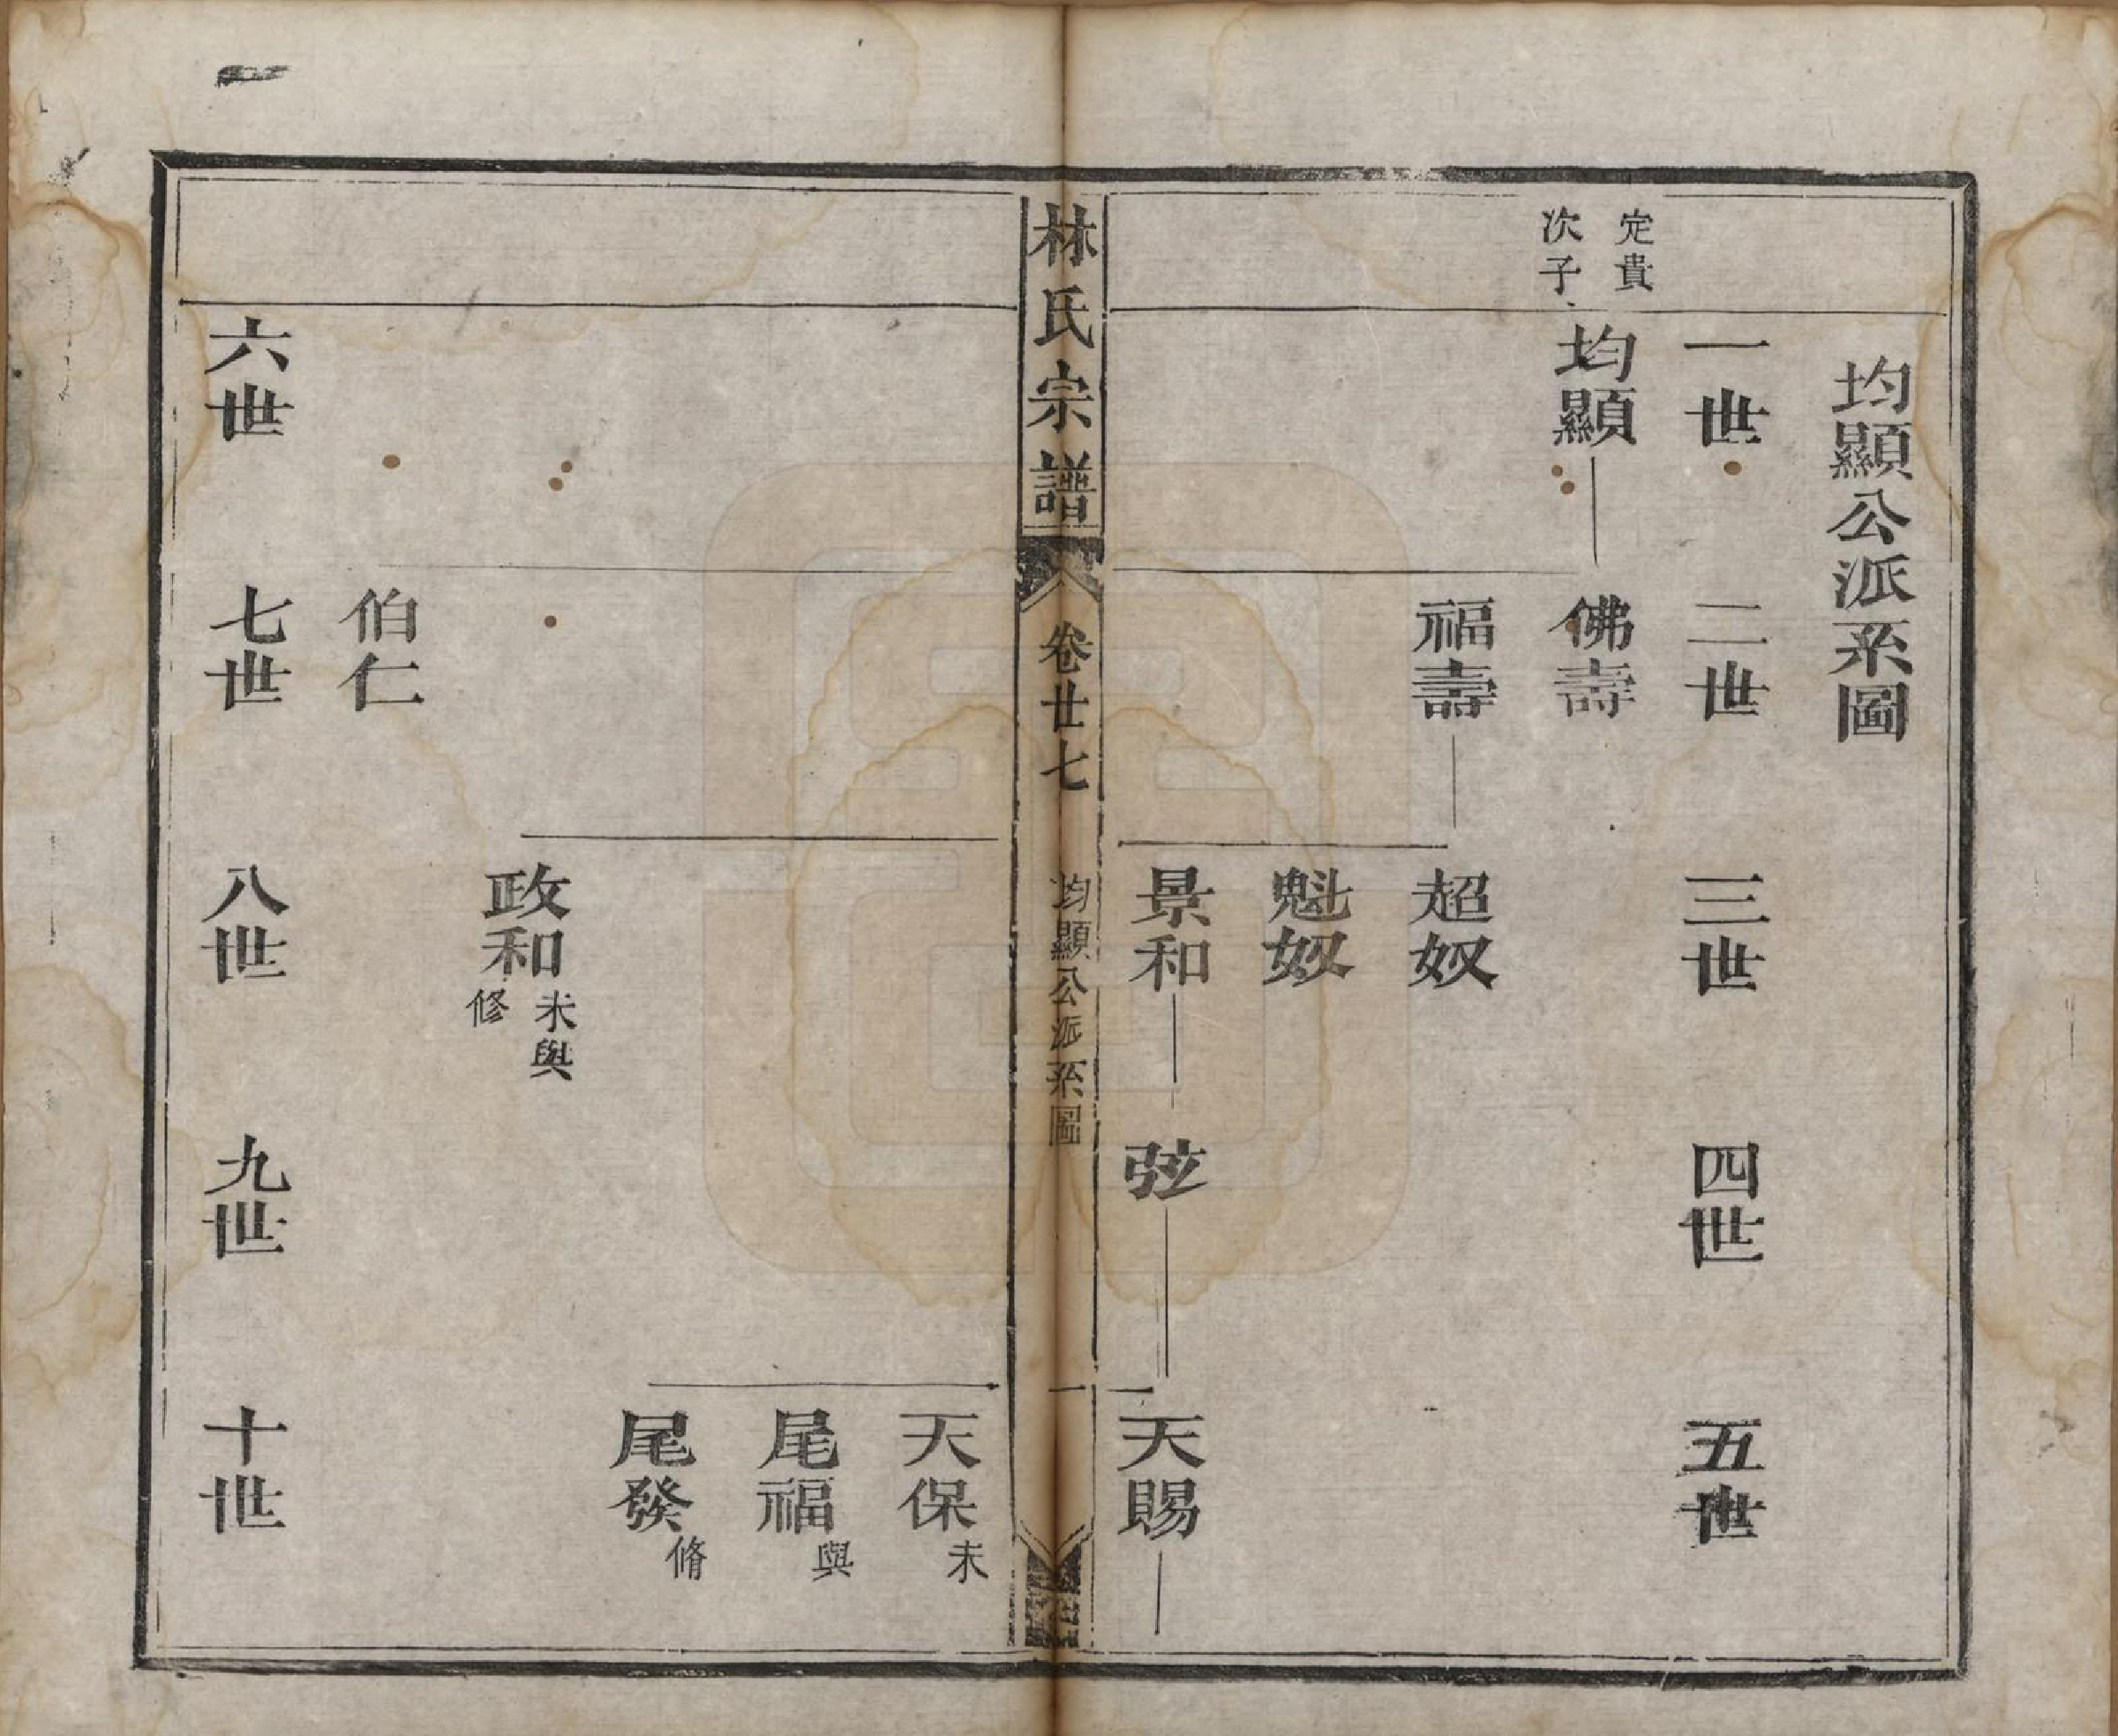 均顯公派系圖
一世
二世
三世
四世
五世
定貴
次子
均顯
佛壽
福壽
超奴
魁奴
景和
弦
天賜
林氏宗譜
卷廿七
均顯公派系圖
一
天保
未
尾福
與
尾發
脩
政和
未與
修
伯仁
六世
七世
八世
九世
十世